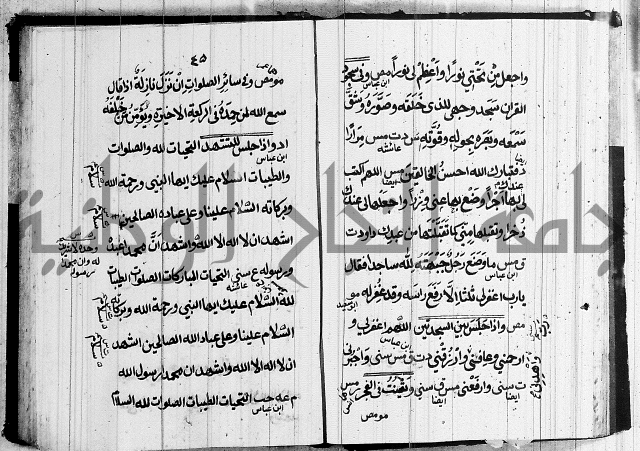 واجعل من تحتي نورا واعظم لي نورا مص وفي سجود
القران سجد وجهي للذي خلقه وصوره وشق
سمعه وبصره بحوله وقوته س د ت مس مرارا
عائشة
فتبارك الله احسن الخالقين مس اللهم اكتب
لي بها اجرا وضع بها عني وزرا واجعلها لي عندك
ذخرا وتقبلها مني كما تقبلتها من عبدك داود ت
ق مس ما وضع رجل جبهته لله ساجدا فقال
ابن عباس
يا رب اغفر لي ثلثا الا رفع راسه وقد غفر له
مص واذا جلس بين السجدتين اللهم اغفر لي و
ابن عباس
ارحمني وعافني وارزقني د ت ق مس سني واجبرني
ت سني وارفعني مس ق سني ويقنت في الفجر مس
ايضا ايضا
مو مص
٤٥
مو مص وفي سائر الصلوات ان نزل نازلة اذا قال
سمع الله لمن حمده في الركعة الاخيرة ويؤمن من خلفه
ا د واذا جلس للتشهد التحيات لله والصلوات
ابن عباس
والطيبات السلام عليك ايها النبي ورحمة الله
وبركاته السلام علينا وعلى عباد الله الصالحين
اشهد ان لا اله الا الله واشهد ان محمدا عبده
وحده لا شريك له وان محمدا رسوله
ورسوله ع سني التحيات المباركات الصلوات الطيبات
لله السلام عليك ايها النبي ورحمة الله وبركاته
السلام علينا وعلى عباد الله الصالحين اشهد
ان لا اله الا الله واشهد ان محمدا رسول الله
م عه حب التحيات الطيبات الصلوات لله السلام
ابن عباس
جامعة النجاح الوطنية